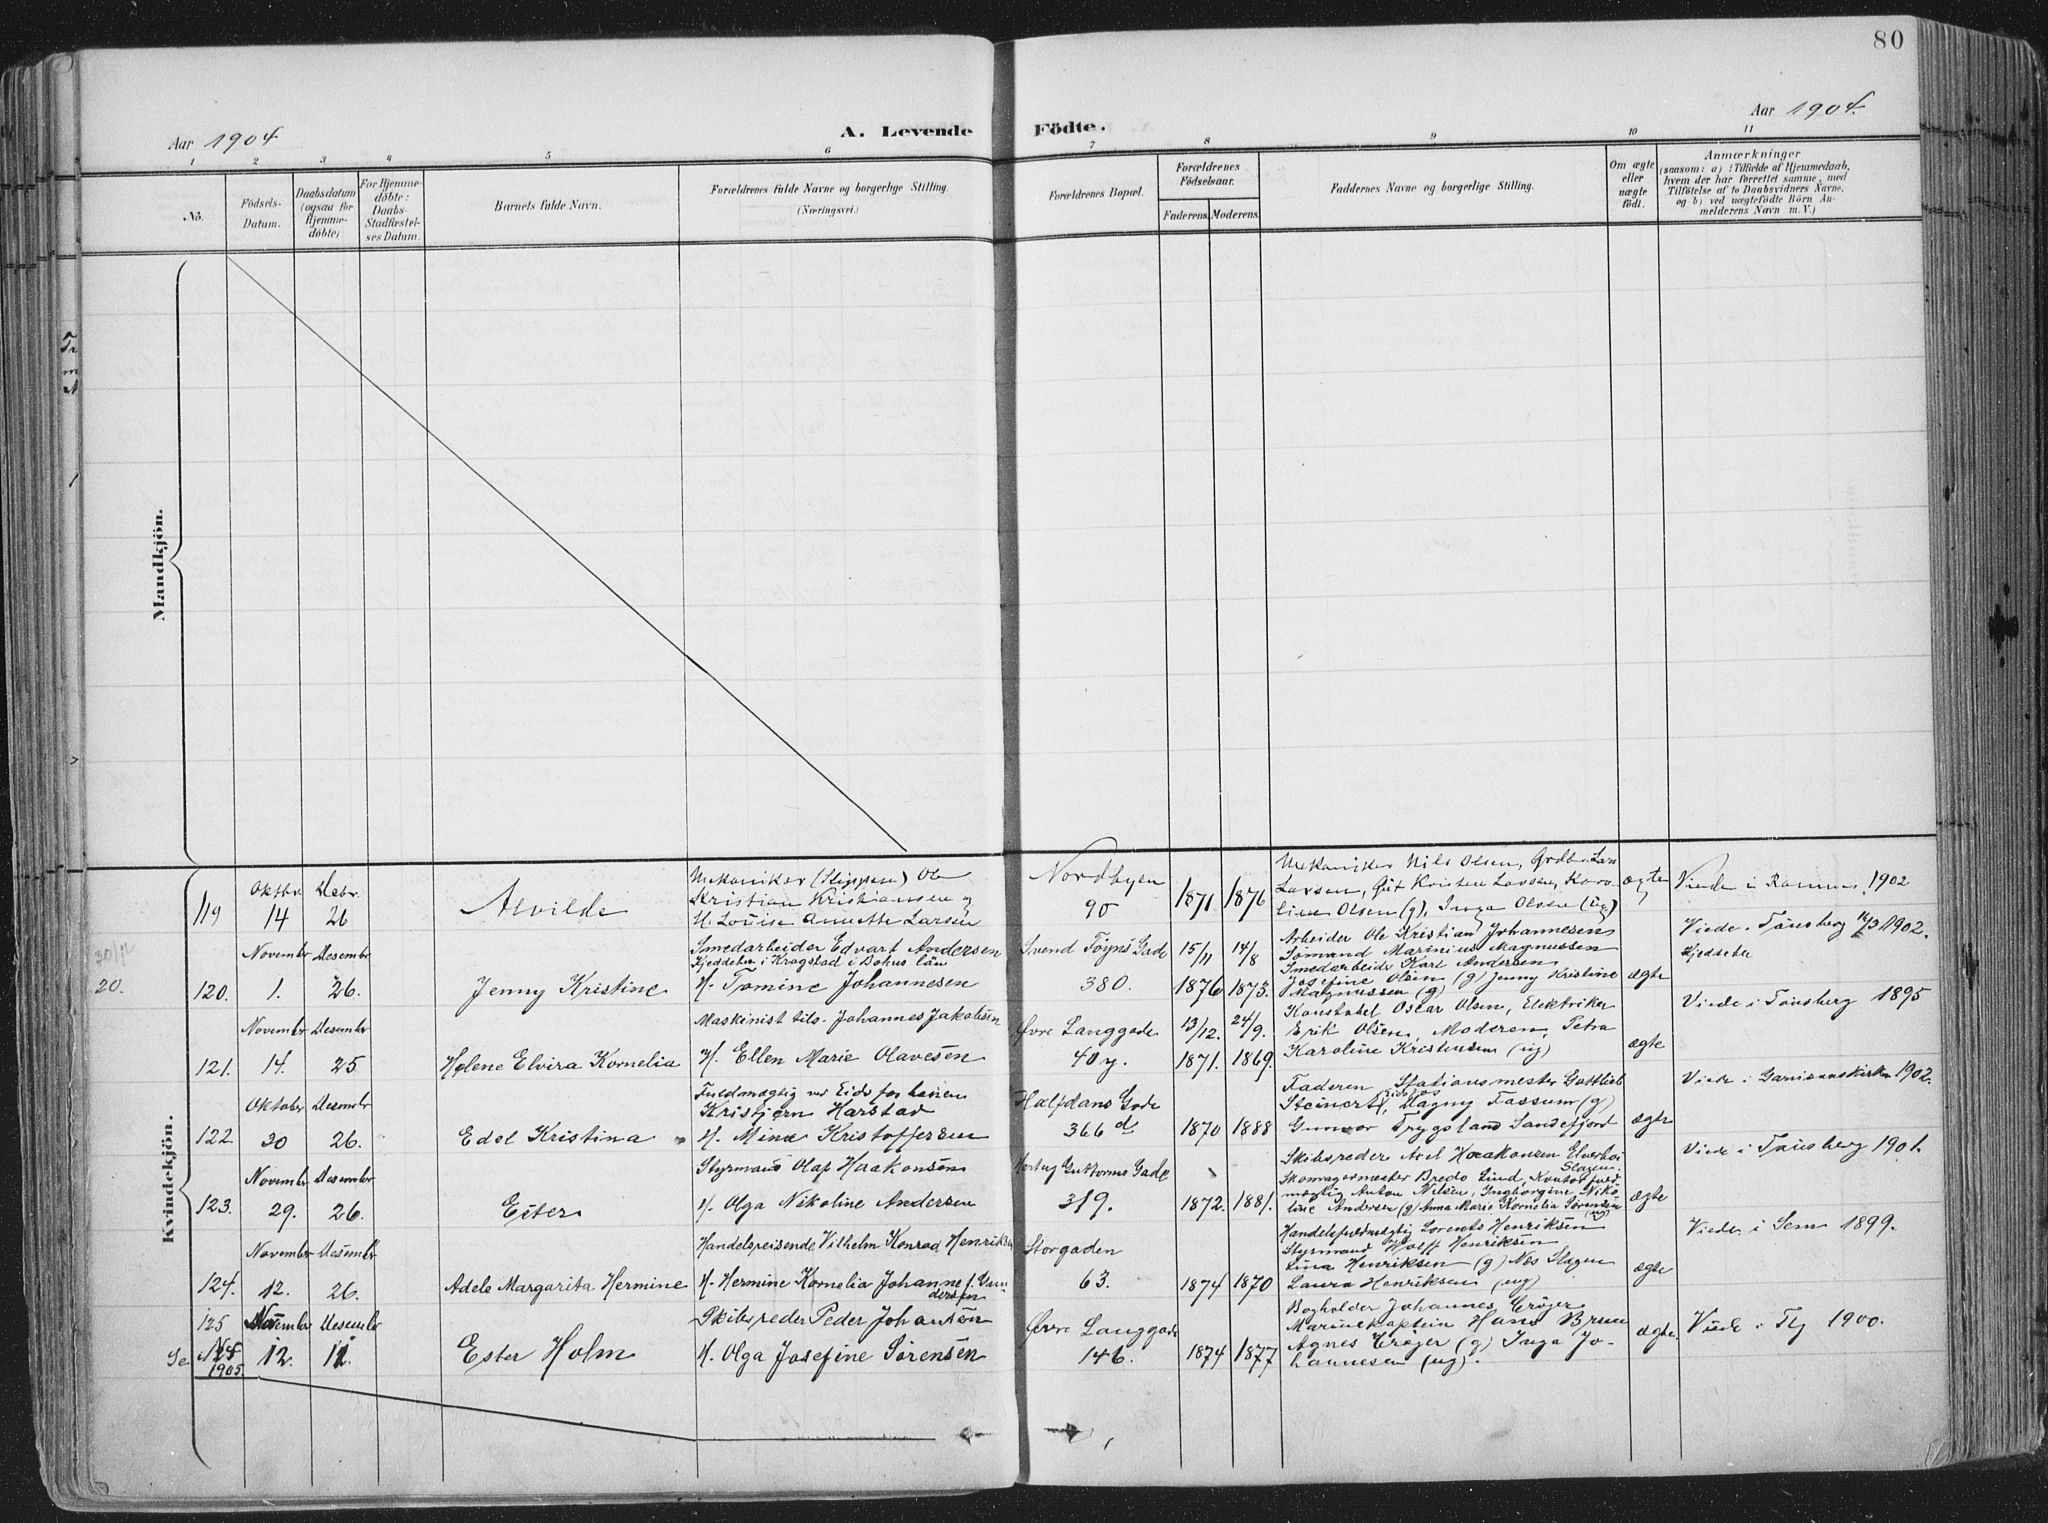 80
Aar 1904
A. Levende
Födte.
Aar 1904.
1 2 3 4 5 6 7 8 9 10 11
No.
Födsels-
Datum.
Daabsdatum
(ogsaa for
Hjemme-
döbte)
For Hjemme-
döbte:
Daabs-
Stadfæstel-
ses Datum.
Barnets fulde Navn.
Forældrenes fulde Navne og borgerlige Stilling.
(Næringsvei.)
Forældrenes Bopæl.
Forældrenes
Födselsaar.
Faderens. Moderens.
Faddernes Navne og borgerlige Stilling.
Om ægte
eller
uægte
födt.
Anmærkninger
(saasom: a) i Tilfælde af Hjemmedaab,
hvem der har forrettet samme, med
Tilföielse af to Daabsvidners Navne,
og b) ved uægtefödte Börn An-
melderens Navn m. V.)
Mandkjön.
Kvindekjön.
119
Oktbr
14
Debr
26
Alvilde
Mekaniker (Skipper) Ole
Kristian Kristiansen og
H. Louise Annette Larsen
Nordbyen
90
1871 1876
Mekaniker Nils Olsen,
Larsen, Kristen Larsen, Karo-
line Olsen (g), Inga Olsen (ug)
ægte
Viede i Ramnes 1902
20.
120.
November
1.
Desembr
26.
Jenny Kristine
Smedarbeider Edvart Andersen
Kjeddeber i Krogstad i Bohus län
H. Tomine Johannesen
Svend Foyns Gade
380.
15/11 1876
14/8 1873.
Arbeider Ole Kristian Johannesen
Sömand Marinius Magnussen
Smedarbeider Karl Andersen
Josefine Olsen (g) Jenny Kristine
Magnussen (g)
ægte
Viede i Tönsberg 1902.
121.
November
14.
Desember
25
Helene Elvira Kornelia
Maskinist tils. Johannes Jakobsen
H. Ellen Marie Olavesen
Øvre Langgade
40 y.
13/12. 1871.
24/9. 1869.
Konstabel Oscar Olsen, Elektriker
Erik Olsen, Moderen, Petra
Karoline Kristensen (ug)
ægte
Viede i Tönsberg 1895
122.
Oktober
30
Desember
26.
Edel Kristina
Fuldmægtig ved
Kristjern Harstad
H. Mina Kristoffersen
Halfdans Gade
366 d
1870 1888
Faderen, Stationsmester Gottlieb
Steinert, Dagny Fassum (g)
Gunvor Trygsland Sandefjord
ægte
Viede i Garnisonskirken 1902.
123.
November
29.
Desember
26.
Ester
Styrmand Olaf Haakonsen
H. Olga Nikoline Andersen
Hertug Guttorms Gade
319.
1872. 1881.
Skibsreder Axel Haakonsen
Slagen
Skomagermester Bredo Lund, Kontorfuld-
mægtig Anton Nilsen, Ingborgine Niko-
line Andersen (g) Anna Marie Kornelia Sörensen
(ug)
ægte
Viede i Tönsberg 1901.
124.
November
12.
Desember
26.
Adele Margarita Hermine
Handelsreisende Vilhelm Konrad Henriksen
H. Hermine Kornelia Johanne f. Gun-
dersen
Storgaden
63.
1874 1870
Handelsfuldmægtig Lorents Henriksen
Styrmand Wolff Henriksen
Lina Henriksen (g) Nes Slagen
Laura Henriksen (ug)
ægte
Viede i Sem 1899.
125
Se
1905.
November
12.
Desember
11.
Ester Holm
Skibsreder Peder Johansen
H. Olga Josefine Sörensen
Øvre Langgade
146.
1874 1877
Bogholder Johannes Cröger
Marinekaptein Hans Bruun
Agnes Cröger (g) Inga Jo-
hannesen (ug).
ægte
Viede i 1900.